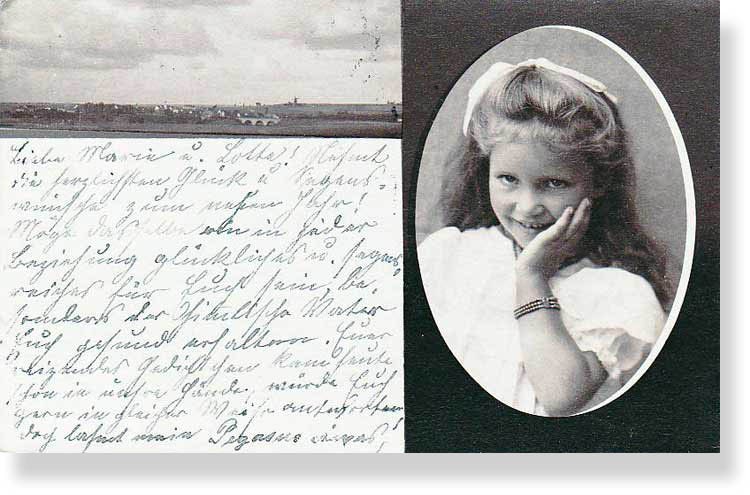 Liebe Marie u. Lotte! Nehmt
die herzlichsten Glück u. Segens-
wünsche zum neuen Jahr!
Möge dasselbe ein in jeder
Beziehung glückliches u. segens-
reiches für Euch sein, be-
sonders der Himmlische Vater
Euch gesund erhalten. Euer
reizendes Gedichtchen kam heute
schon in unsre Hände, würde Euch
gern in gleicher Weise antworten,
doch lahmt mein Pegasus etwas,